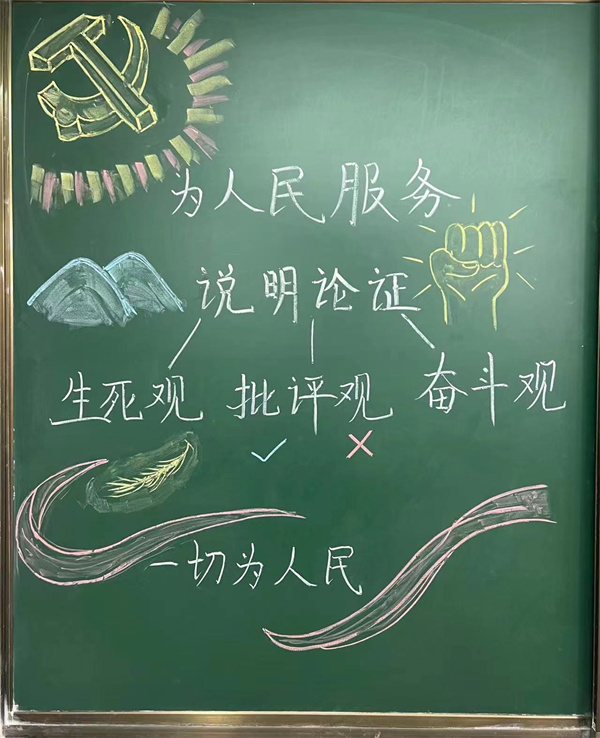 为人民服务
说明论证
生死观 批评观 奋斗观
一切为人民